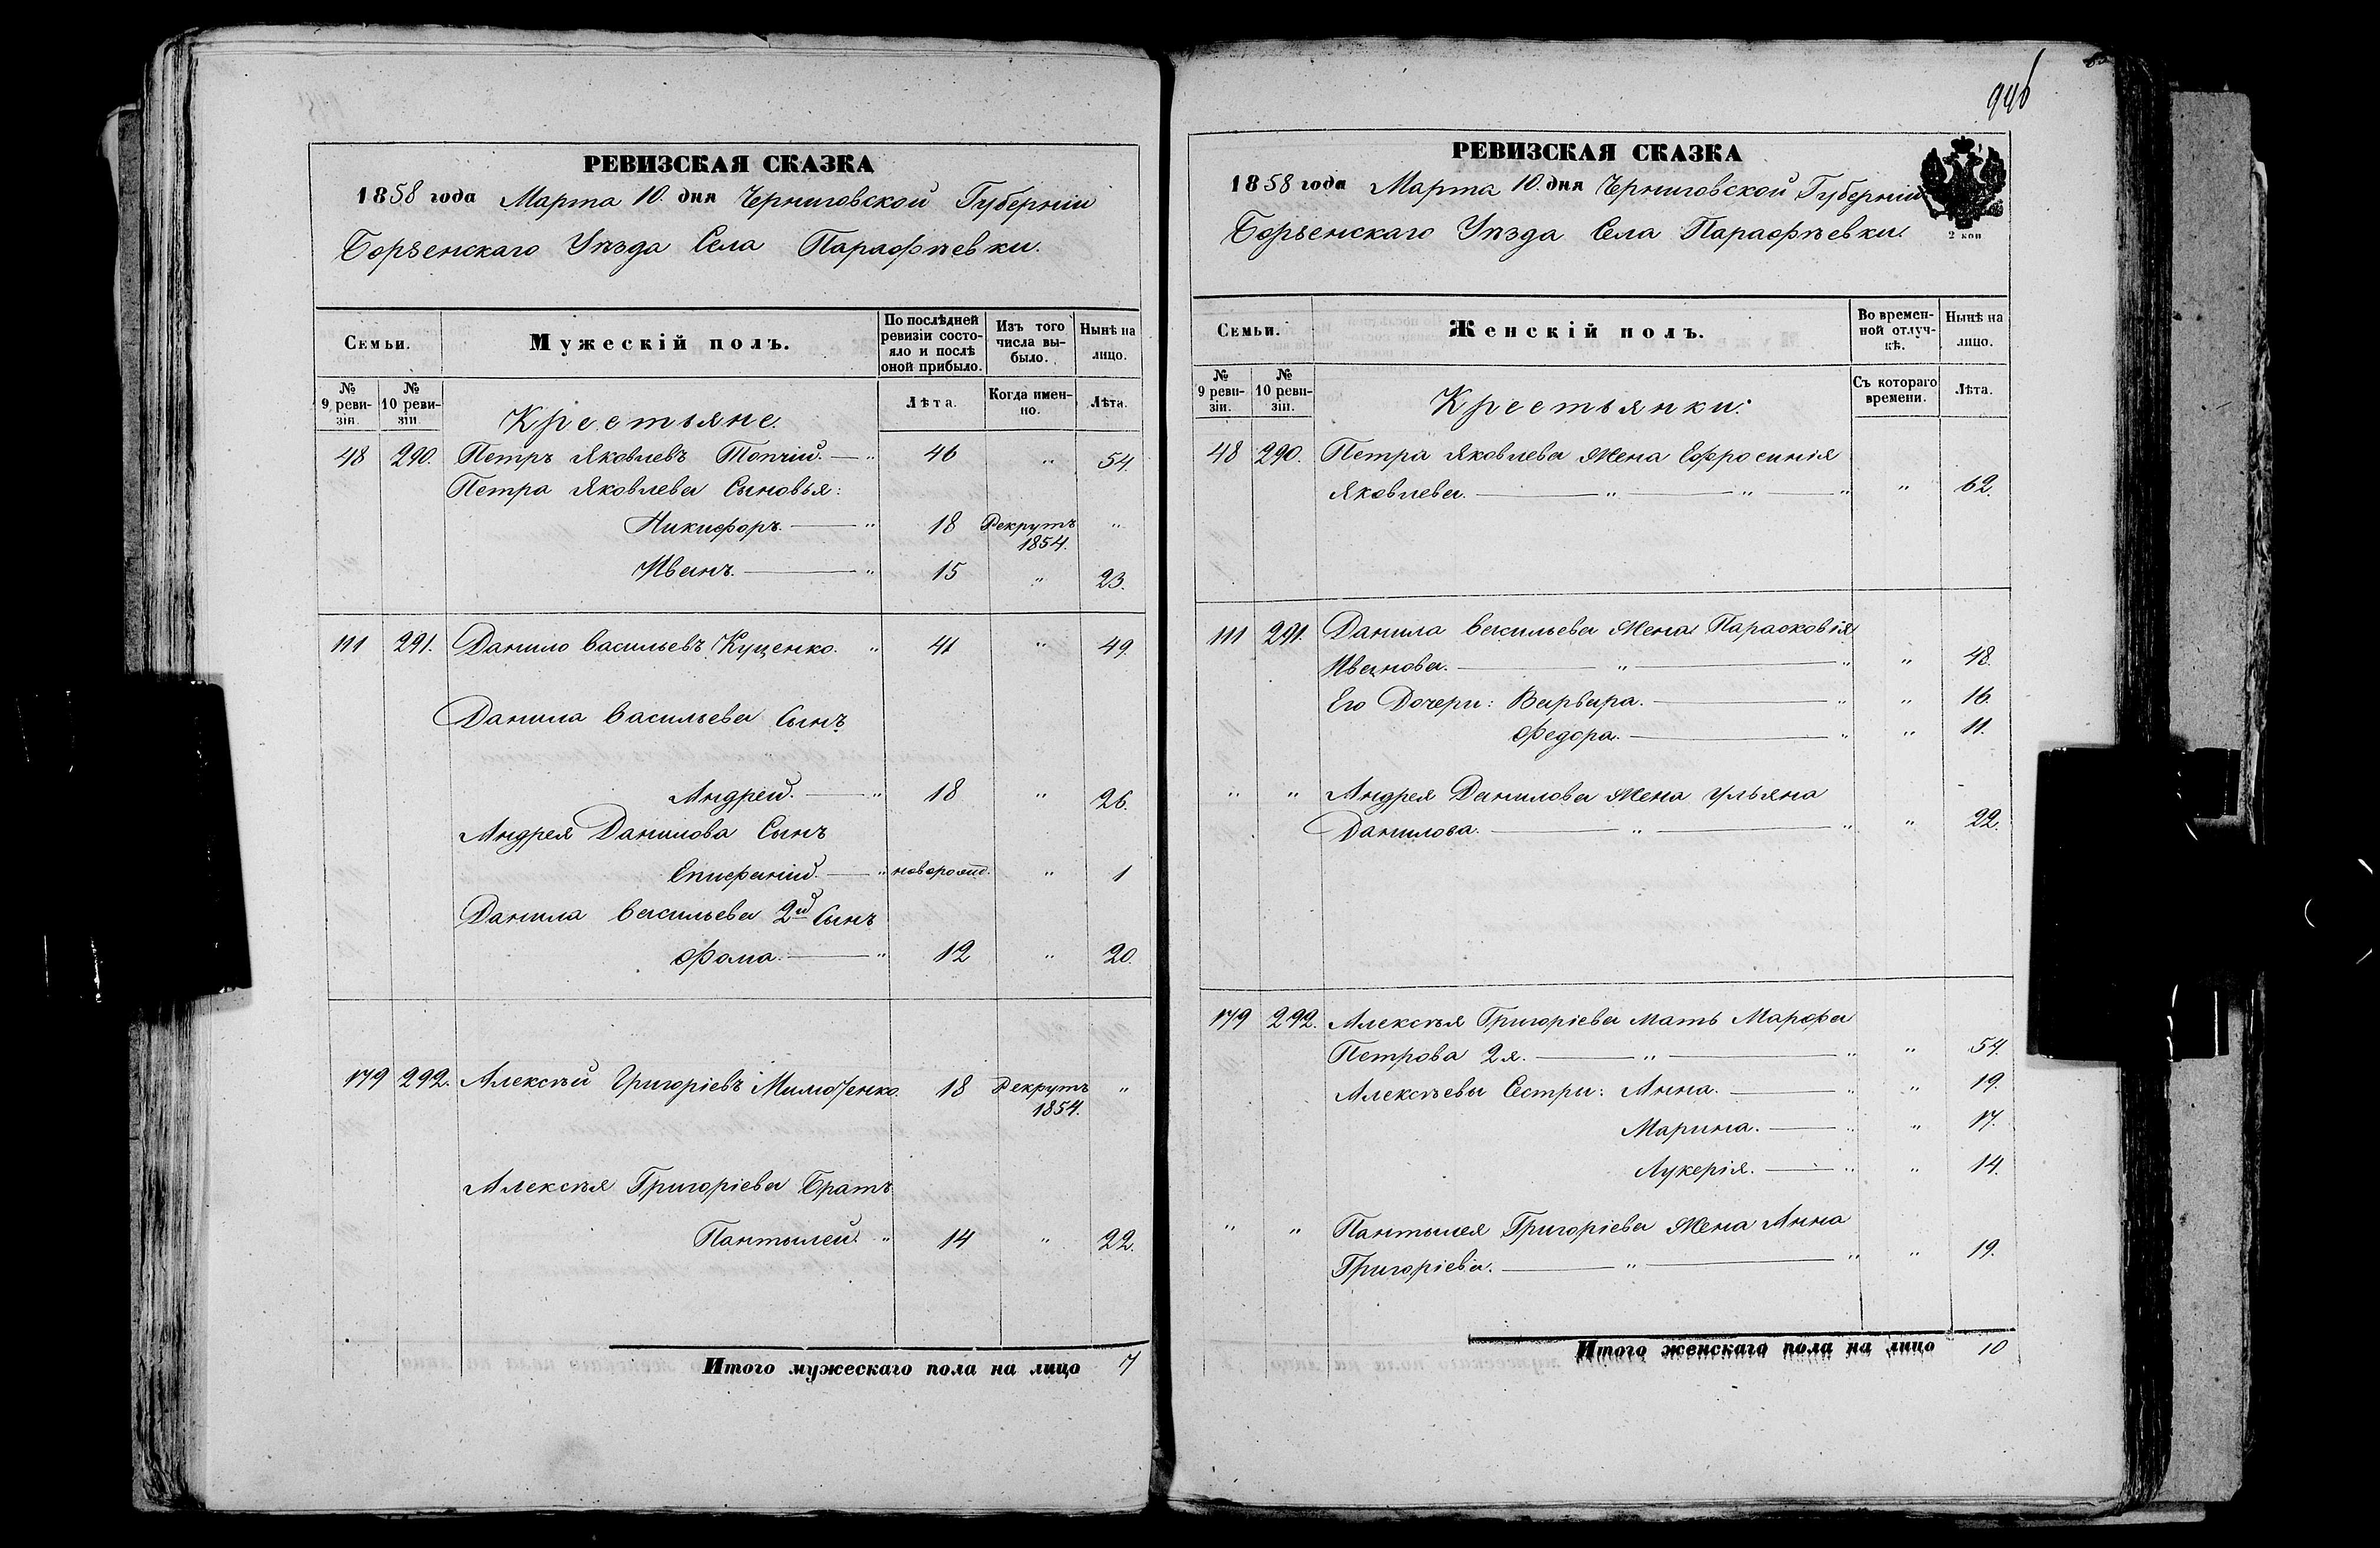 РЕВИЗСКАЯ СКАЗКА
1858 года Марта 10. дня Черниговской Губерніи
Борзенскаго Уѣзда Села Парафѣевки.
Семьи.
Мужескій полъ.
По послѣдней ревизіи состояло и послѣ оной прибыло.
Изъ того числа выбыло.
Нынѣ на лицо.
№ 9 ревизіи.
№ 10 ревизіи.
Лѣта.
Когда именно.
Лѣта.
Крестьяне.
48 290. Петръ Яковлевъ Топчій. — " 46 " 54
Петра Яковлева Сыновья:
Никифоръ. — " 18 Рекрутъ 1854. "
Иванъ. — " 15 " 23.
111 291. Данило Васильевъ Куценко. " 41 " 49.
Данила Васильева Сынъ
Андрей. — " 18 " 26.
Андрея Данилова Сынъ
Епифаній. — " новорожд. " 1
Данила Васильева 2й Сынъ
Фома. — " 12 " 20.
179 292. Алексѣй Григоріевъ 18 Рекрутъ 1854. "
Алексѣя Григоріева Братъ
Пантылей. " 14 " 22.
Итого мужескаго пола на лицо 7
946
РЕВИЗСКАЯ СКАЗКА
1858 года Марта 10. дня Черниговской Губерніи
Борзенскаго Уѣзда Села Парафѣевки.
2 коп
Семьи.
Женскій полъ.
Во временной отлучкѣ.
Нынѣ на лицо.
№ 9 ревизіи.
№ 10 ревизіи.
Съ котораго времени.
Лѣта.
Крестьянки:
48 290. Петра Яковлева Жена Ефросинія
Яковлева. — " — " — " " 62.
111 291. Данила Васильева Жена Парасковія
Иванова. — " — " " 48.
Его Дочери: Варвара. — " " 16.
Федора. — " " 11.
" " Андрея Данилова Жена Ульяна
Данилова. — " — " " 22.
179 292. Алексѣя Григоріева Мать Марфа
Петрова 2я. — " — " " 54.
Алексѣевы Сестры: Анна. — " " 19.
Марина. — " " 17.
Лукерія. — " " 14.
" " Пантылея Григоріева Жена Анна
Григоріева. — " — " " 19.
Итого женскаго пола на лицо 10